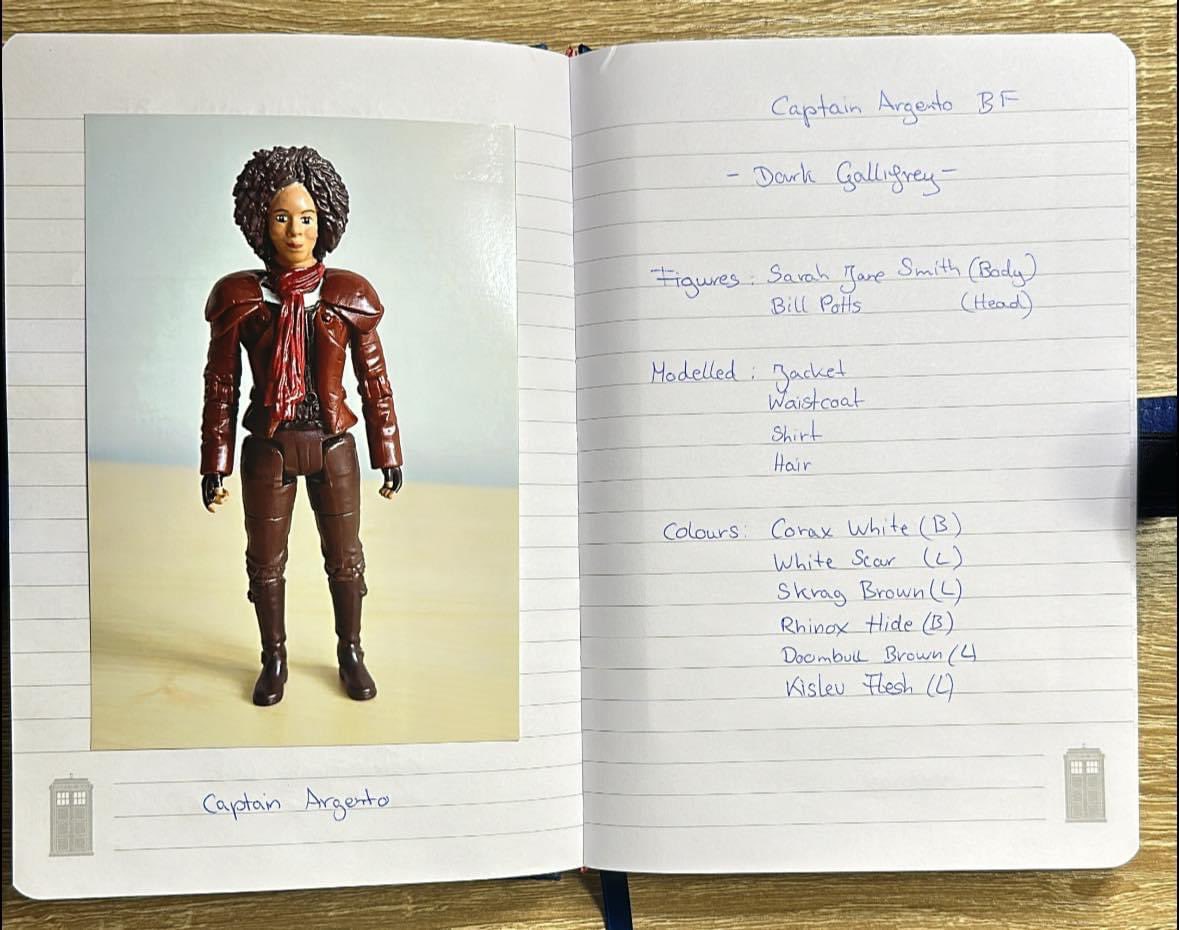 Captain Argento
Captain Argento BF
- Dark Gallifrey -
Figures: Sarah Jane Smith (Body)
Bill Potts (Head)
Modelled: Jacket
Waistcoat
Shirt
Hair
Colours: Corax White (B)
White Scar (L)
Skrag Brown (L)
Rhinox Hide (B)
Doombull Brown (L)
Kislev Flesh (L)